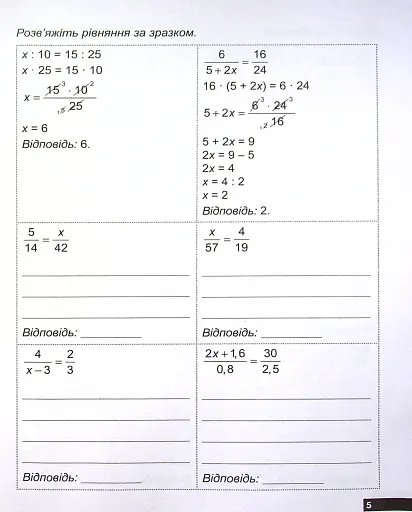 Розв'яжіть рівняння за зразком.
x : 10 = 15 : 25
x · 25 = 15 · 10
x = 15³ · 10² / ₁,₅ 25
x = 6
Відповідь: 6.
6 / 5 + 2x = 16 / 24
16 · (5 + 2x) = 6 · 24
5 + 2x = 6³ · 24³ / ₁,₂ 16
5 + 2x = 9
2x = 9 – 5
2x = 4
x = 4 : 2
x = 2
Відповідь: 2.
5/14 = x/42
Відповідь:
x/57 = 4/19
Відповідь:
4 / x – 3 = 2/3
Відповідь:
2x + 1,6 / 0,8 = 30 / 2,5
Відповідь:
5